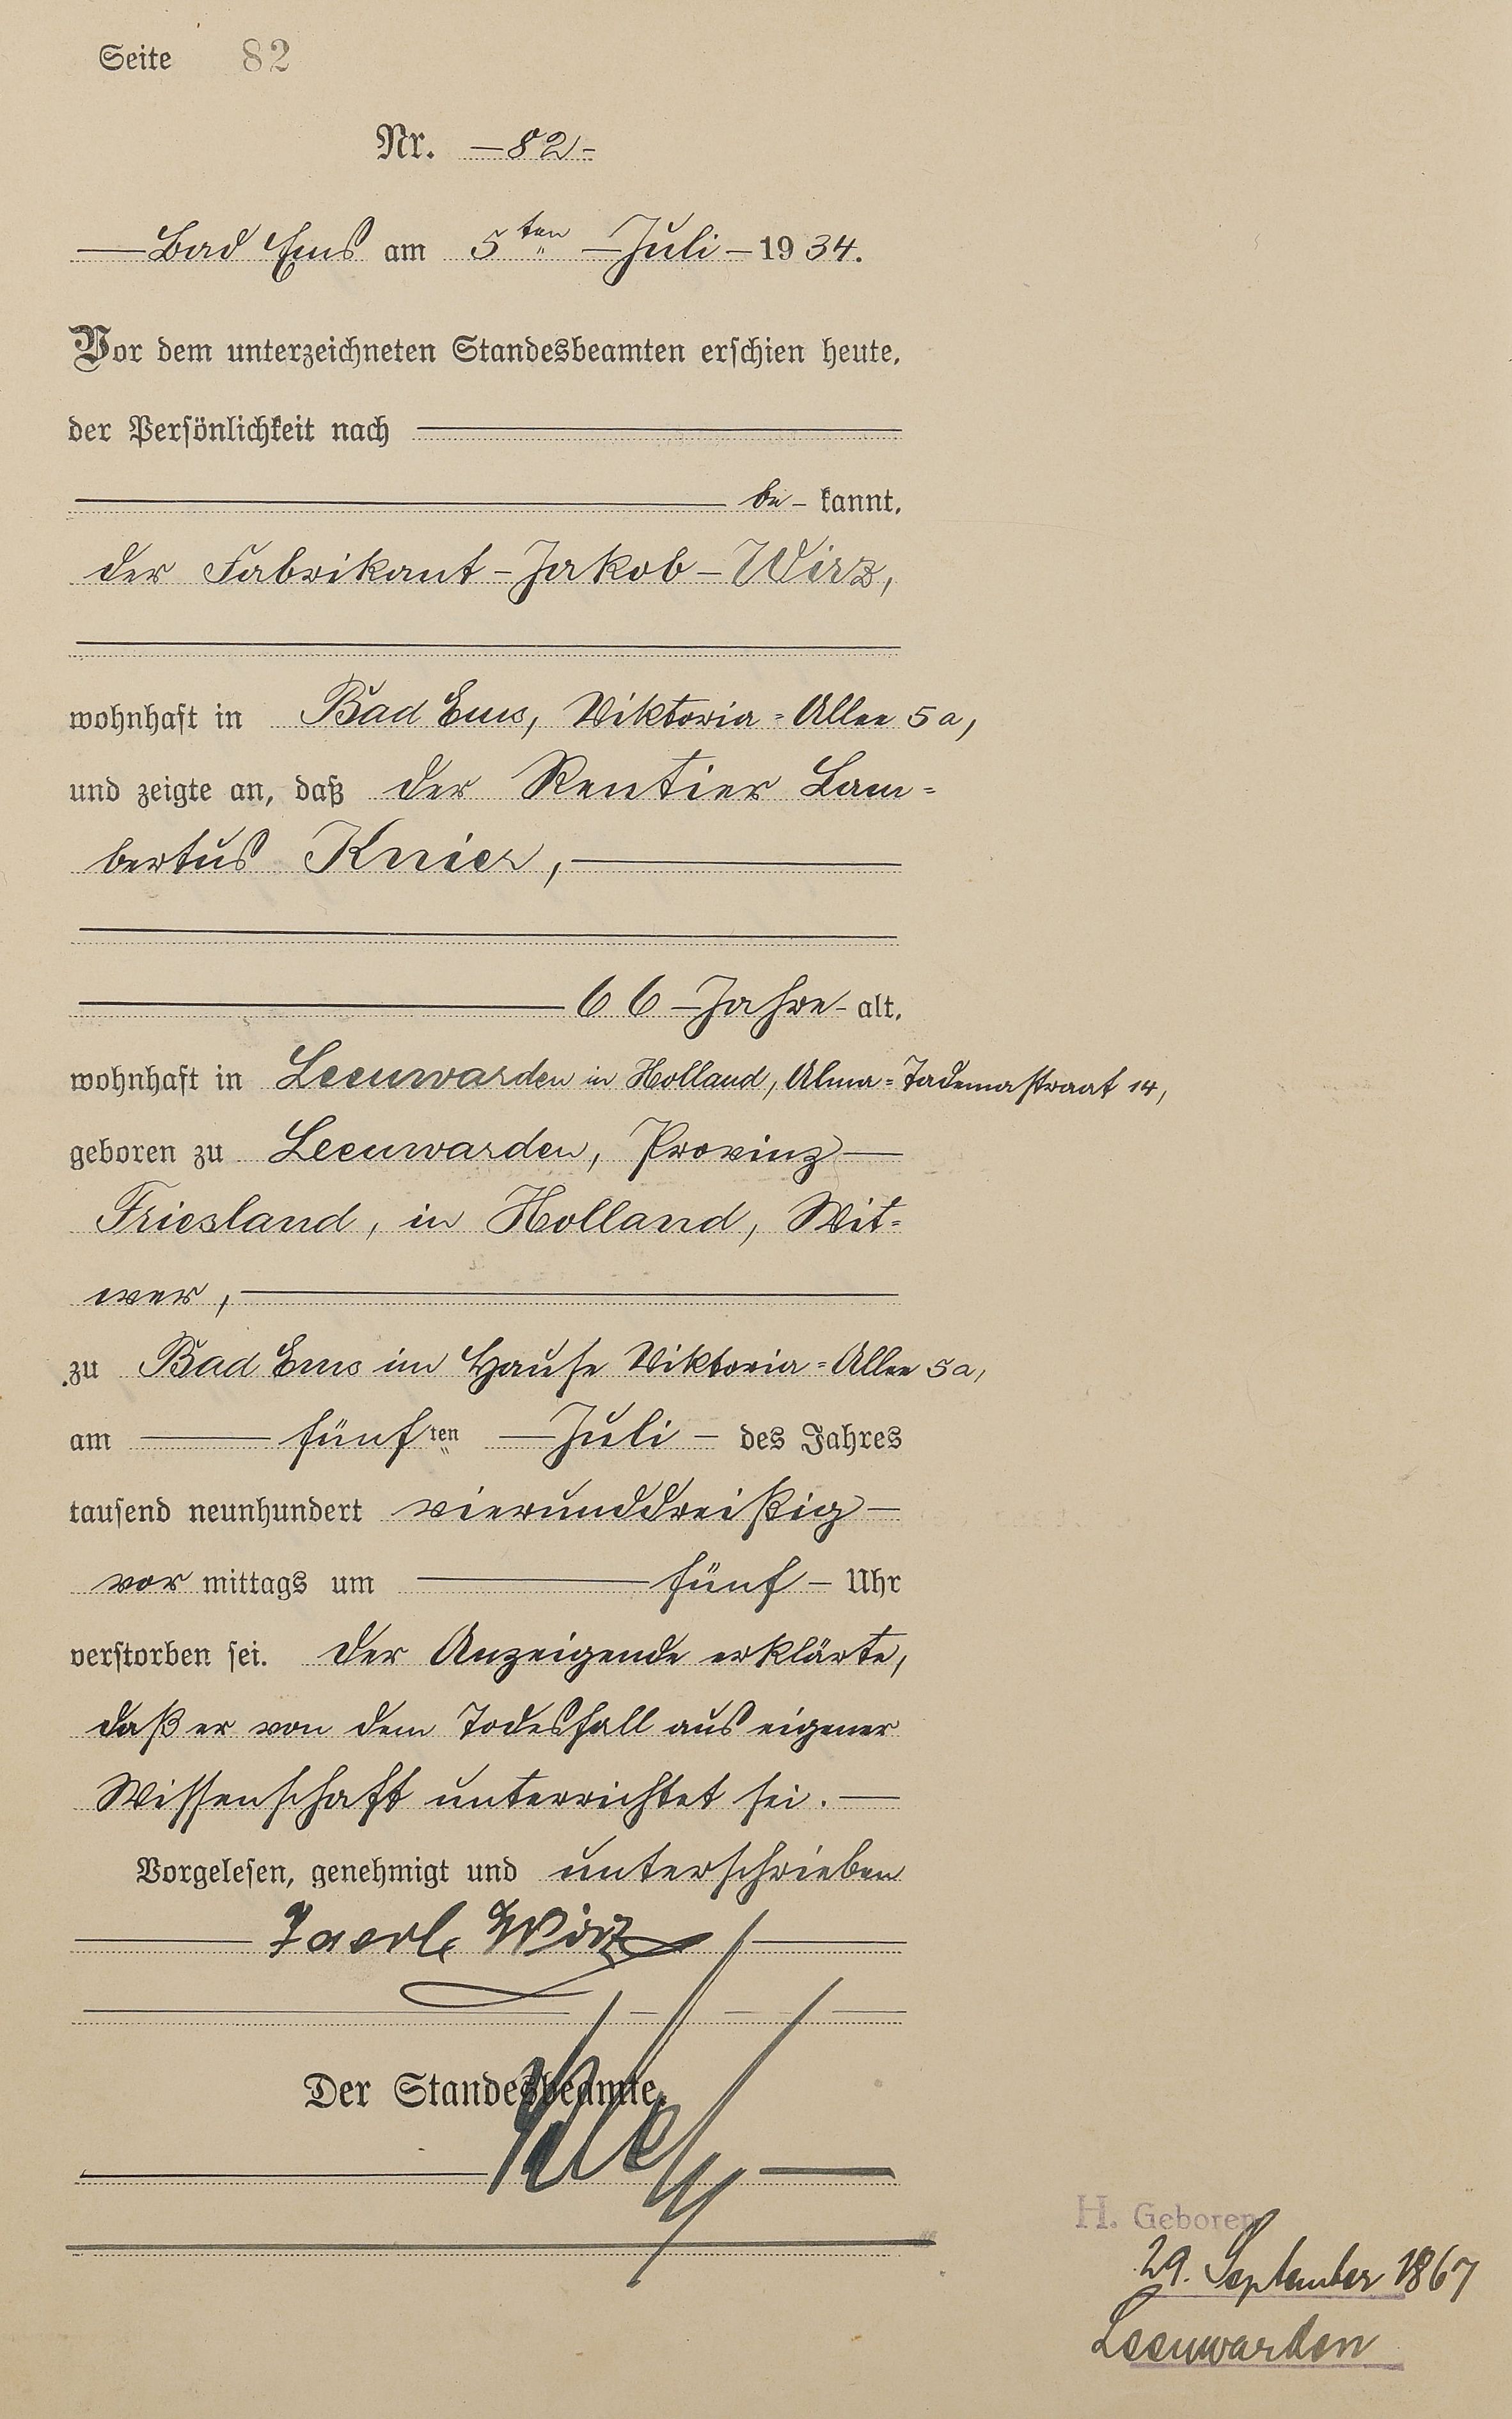 Seite 82
Nr. —82-
— Bad Ems am 5ten — Juli — 1934.
Vor dem unterzeichneten Standesbeamten erschien heute,
der Persönlichkeit nach
be- kannt,
der Fabrikant - Jakob - Wirz,
wohnhaft in Bad Ems, Viktoria-Allee 5a,
und zeigte an, daß der Rentier Lam-
bertus Knier,
66 — Jahre - alt,
wohnhaft in Leeuwarden in Holland, Alma-Tademastraat 14,
geboren zu Leeuwarden, Provinz —
Friesland, in Holland, Wit-
wer,
zu Bad Ems im Hause Viktoria-Allee 5a,
am — fünften — Juli — des Jahres
tausend neunhundert vierunddreißig —
vor mittags um — fünf — Uhr
verstorben sei. Der Anzeigende erklärte,
daß er von dem Todesfall aus eigener
Wissenschaft unterrichtet sei. —
Vorgelesen, genehmigt und unterschrieben
Jacob Wirz
Der Standesbeamte.
H. Geboren
29. September 1867
Leeuwarden